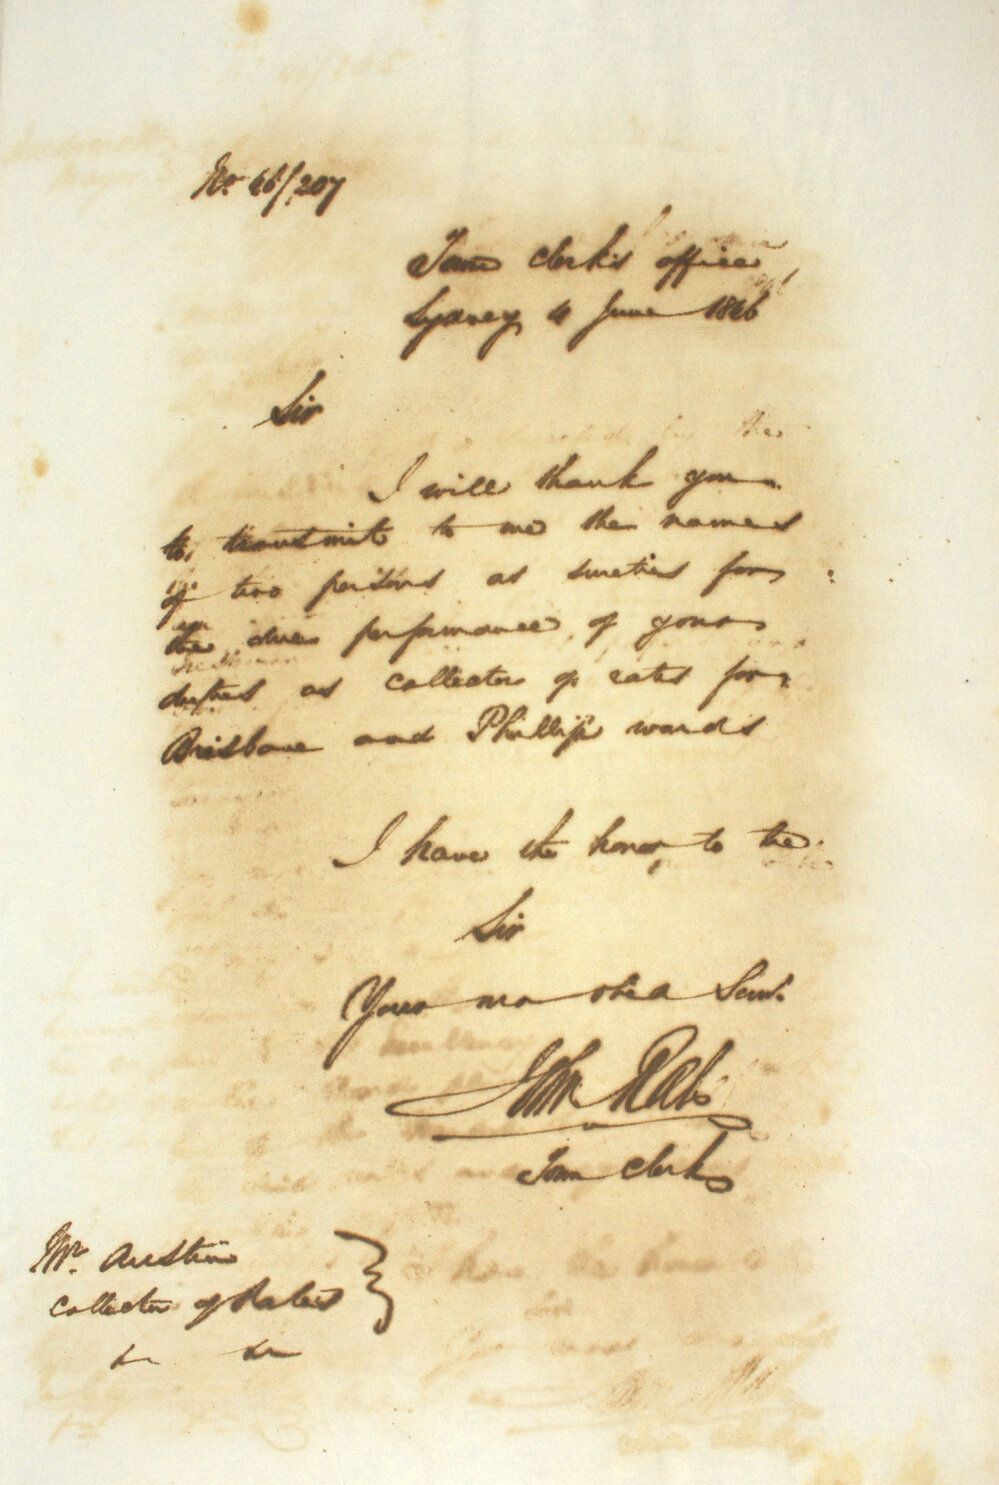 No. 46/207
Town Clerk's office
Sydney 4 June 1846
Sir
I will thank you
to transmit to me the names
of two persons as sureties for
the due performance of your
duties as collector of rates for
Brisbane and Phillip wards
I have the honor to be
Sir
Your mo obed Servt.
John Rae
Town Clerk
Mr. Austin
Collector of Rates